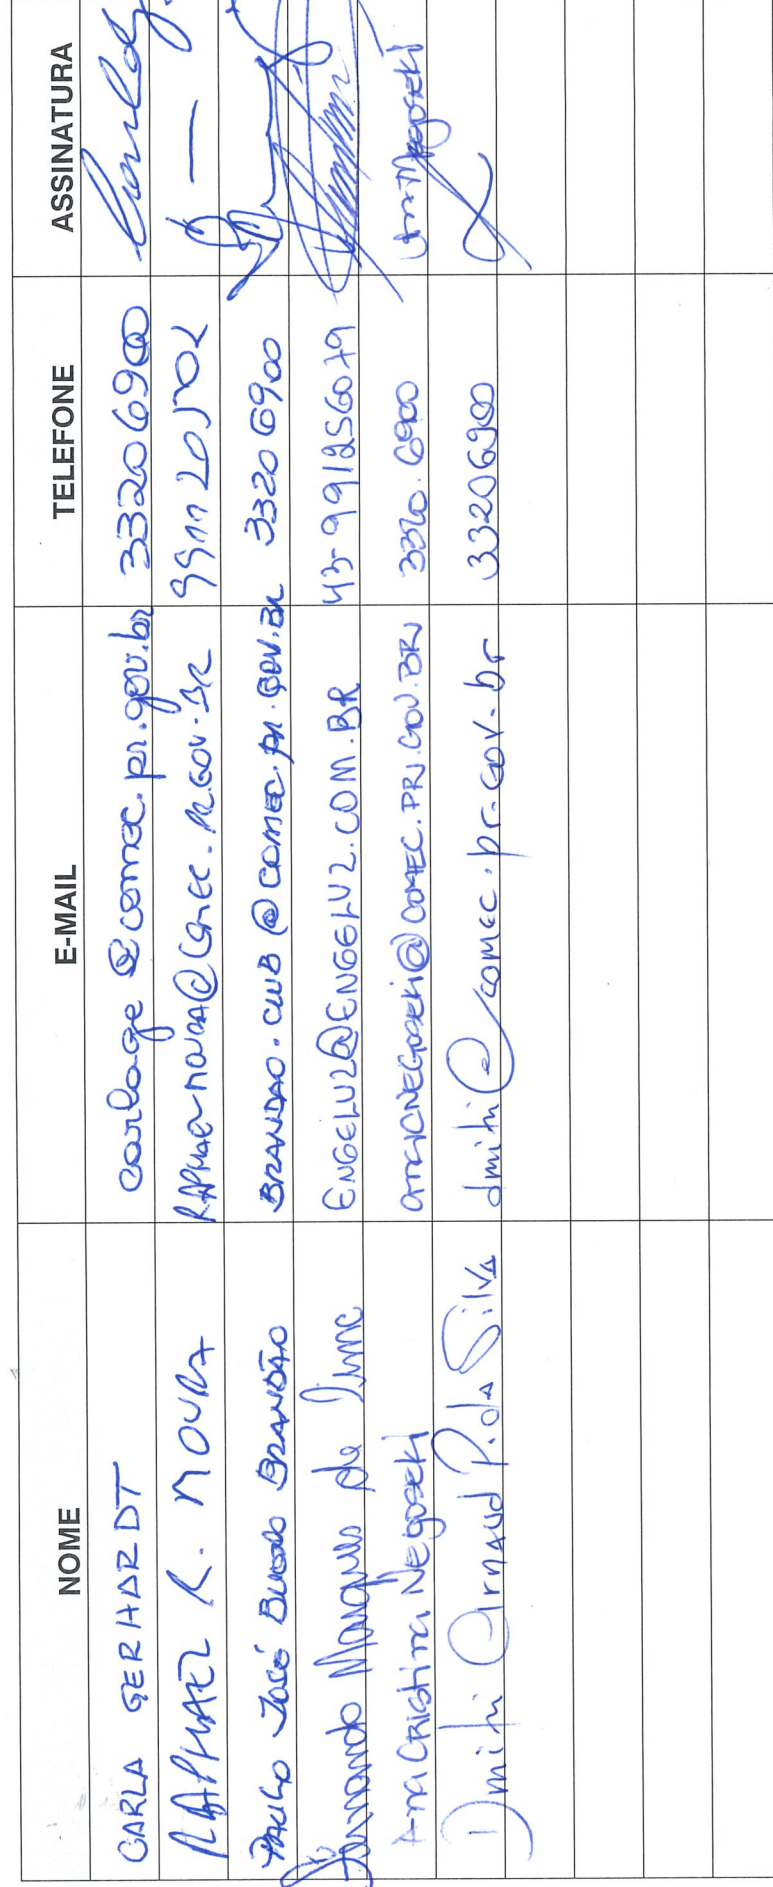 NOME E-MAIL TELEFONE ASSINATURA
CARLA GERHARDT carlage@comec.pr.gov.br 33206900
RAPHAEL R. MOURA RAPHAEL.MOURA@COMEC.PR.GOV.BR
PAULO JOSÉ BUENO BRANDÃO BRANDAO.CWB@COMEC.PR.GOV.BR 3320 6900
Fernando Marques de Lima ENGELUZ@ENGELUZ.COM.BR 43-991256079
Ana Cristina Negoseki anacnegoseki@comec.PR.GOV.BR 3320.6900 Negoseki
Dmitri Arnaud P. da Silva dmitri@comec.pr.gov.br 33206900